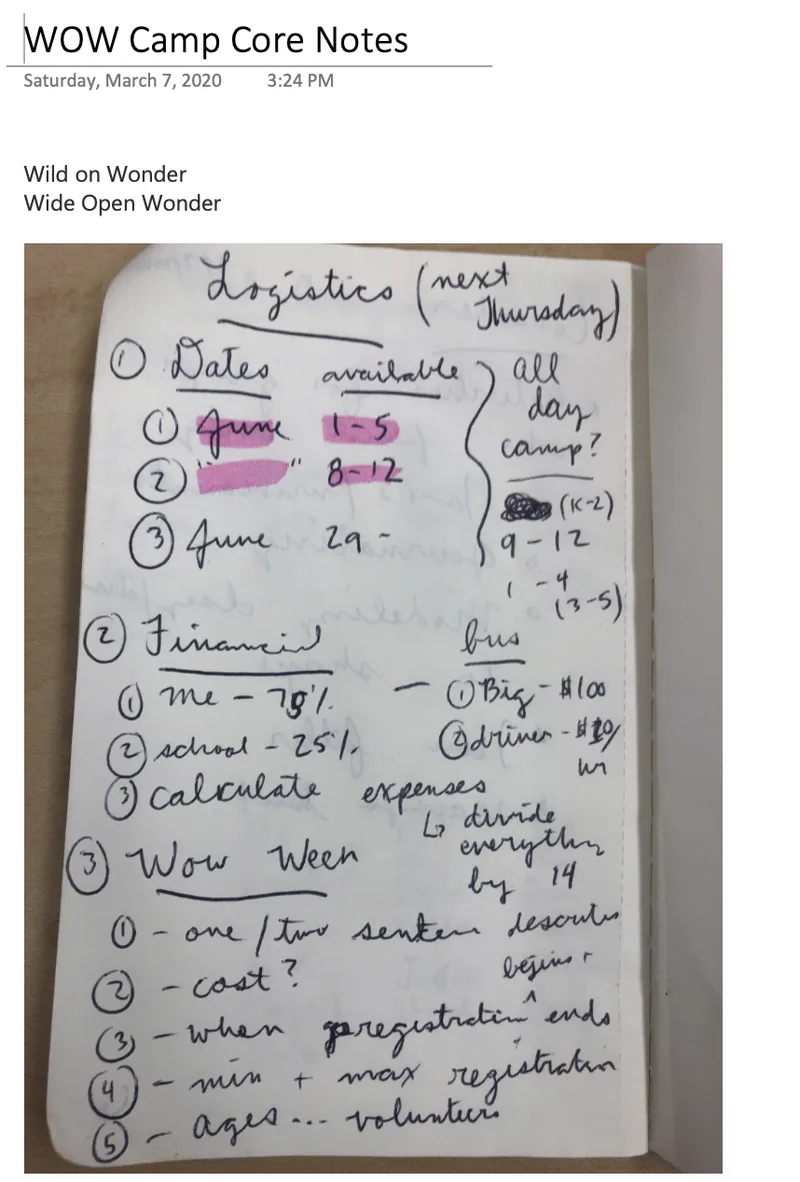 WOW Camp Core Notes
Saturday, March 7, 2020 3:24 PM
Wild on Wonder
Wide Open Wonder
Logistics (next Thursday)
① Dates available
① June 1-5
② " " 8-12
③ June 29 -
all
day
camp?
(K-2)
9-12
1-4
(3-5)
② Financial
① me - 75%
② school - 25%
③ calculate expenses
↳ divide
everything
by 14
bus
— ① Big - $100
② driver - $20/
hr
③ Wow Week
① - one/two senten
② - cost?
③ - when registration begins + ends
④ - min + max registration
⑤ - ages... volunteers